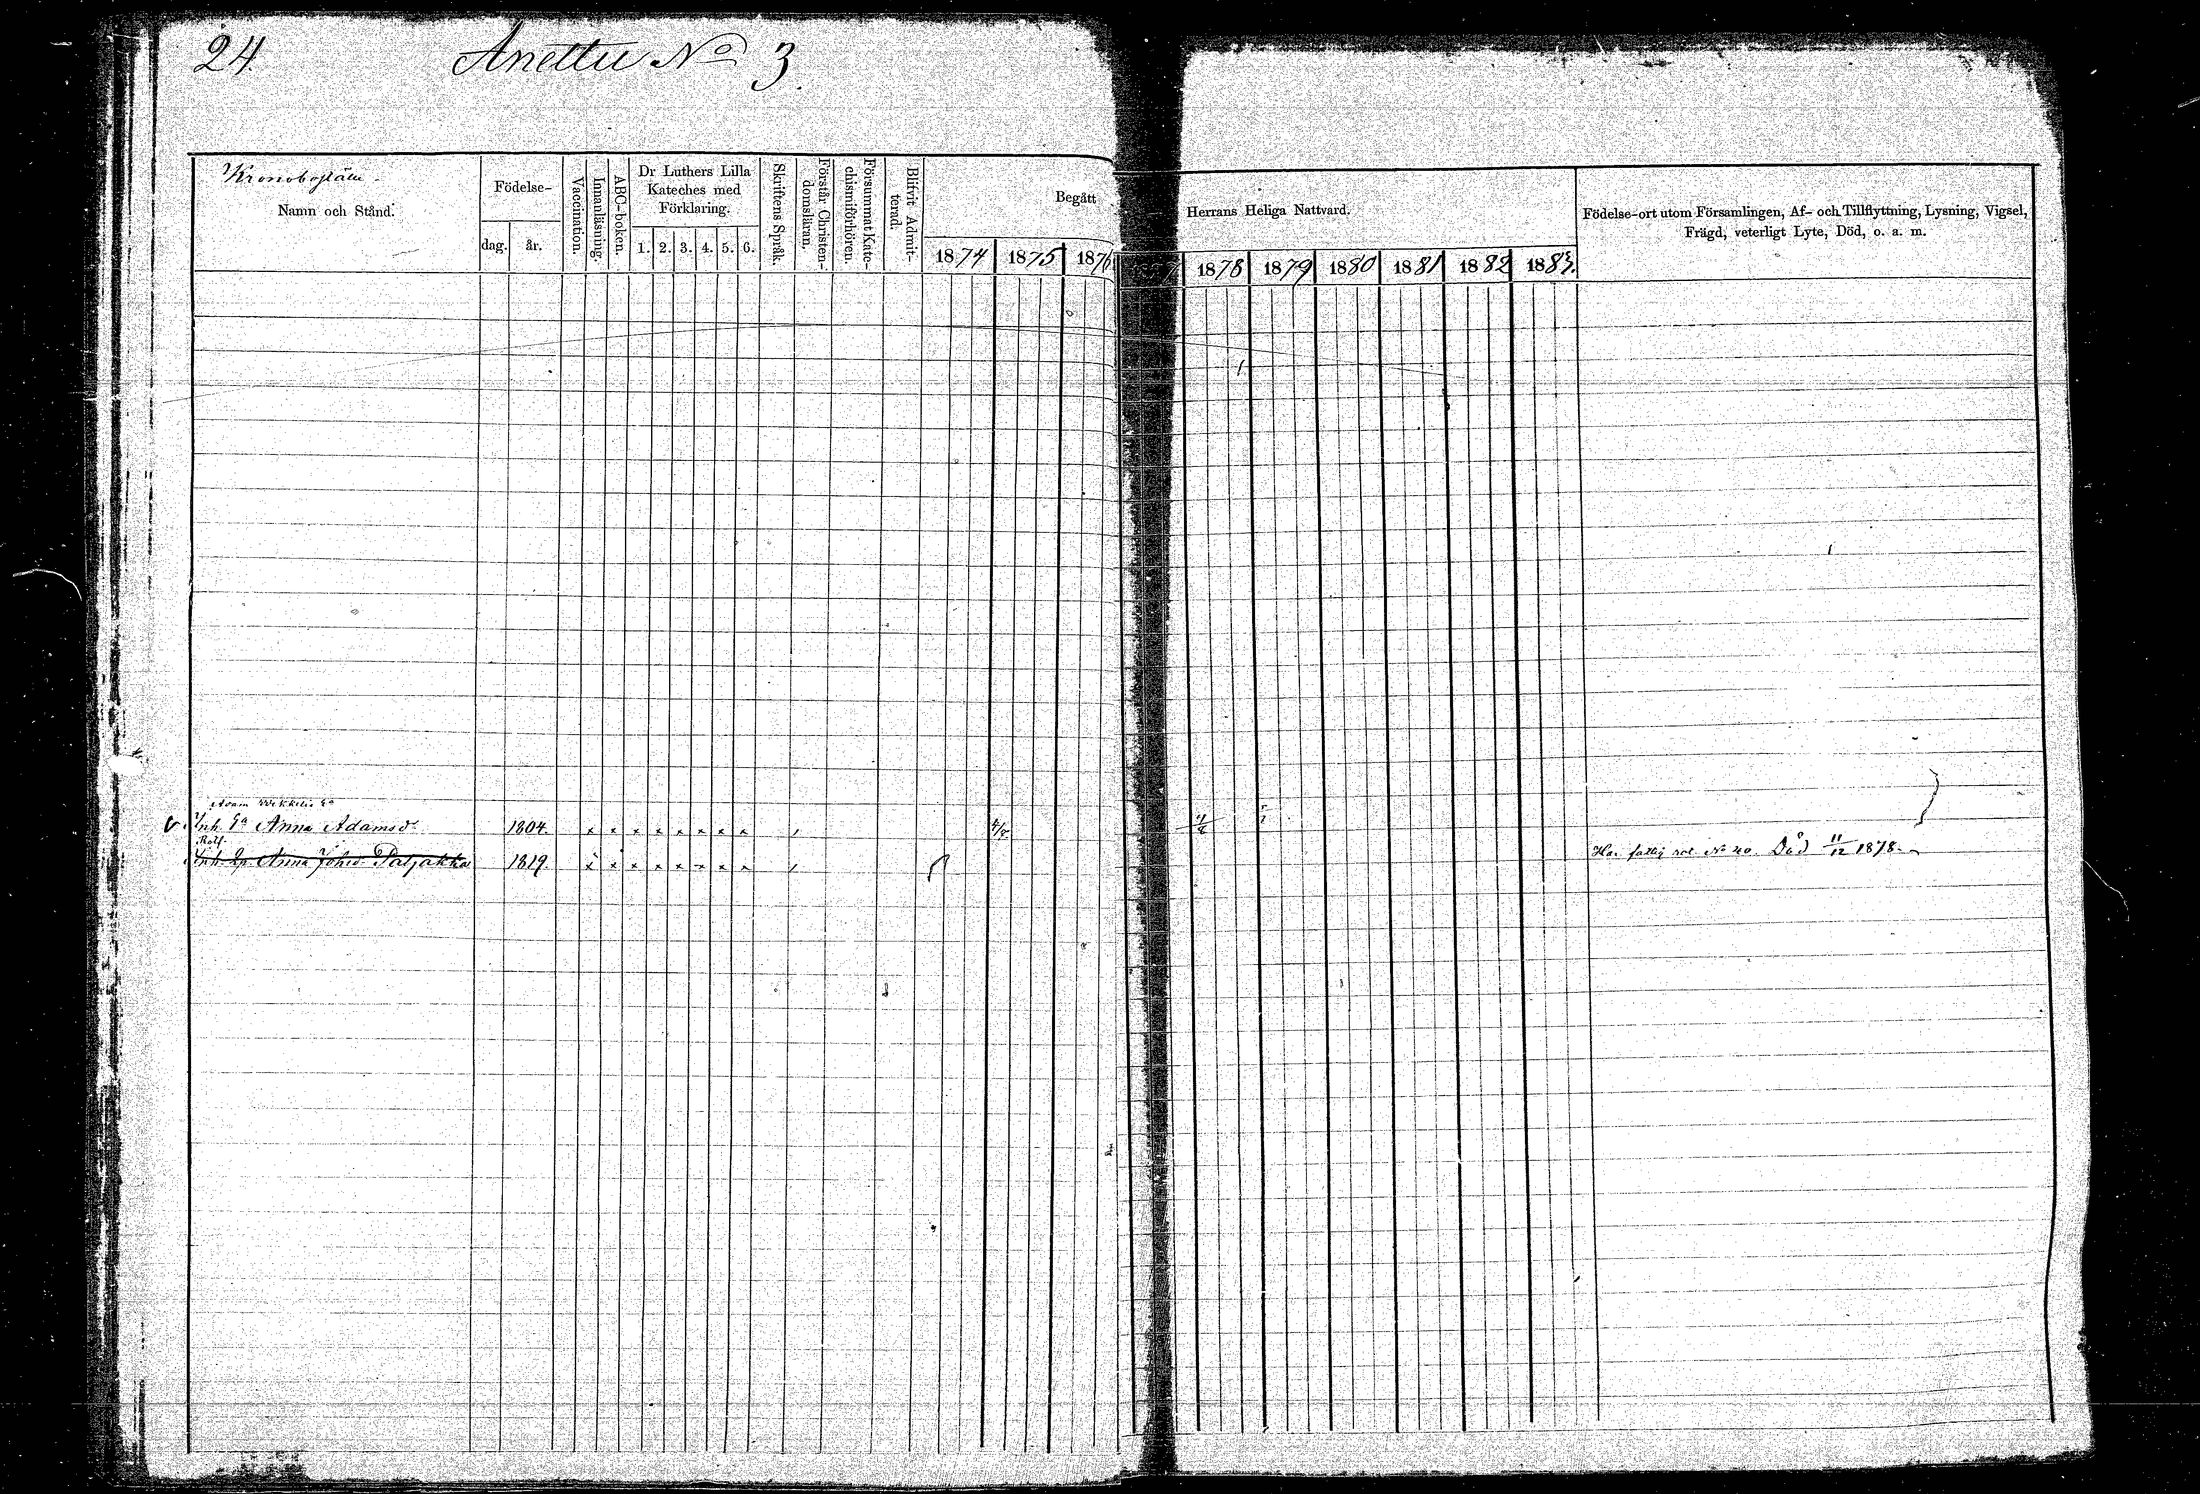 24. Anettu No 3.
Kronoboställe
Namn och Stånd.
Födelse-
dag. år.
Vaccination.
Innanläsning.
ABC-boken.
Dr Luthers Lilla
Kateches med
Förklaring.
1. 2. 3. 4. 5. 6.
Skriftens Språk.
Förstår Christen-
domsläran.
Försummat Kate-
chismiförhören.
Blifvit Admit-
terad.
Begått
Herrans Heliga Nattvard.
1874 1875 1876 1878 1879 1880 1881 1882 1883.
Födelse-ort utom Församlingen, Af- och Tillflyttning, Lysning, Vigsel,
Frägd, veterligt Lyte, Död, o. a. m.
Inh. Ea Anna Adamsd. 1804. x x x x x x x x 4/8
Inh. Anna Johsd. Patjakka 1819. x x x x x x x x
Har fattig No 20. Död 11/12 1878.